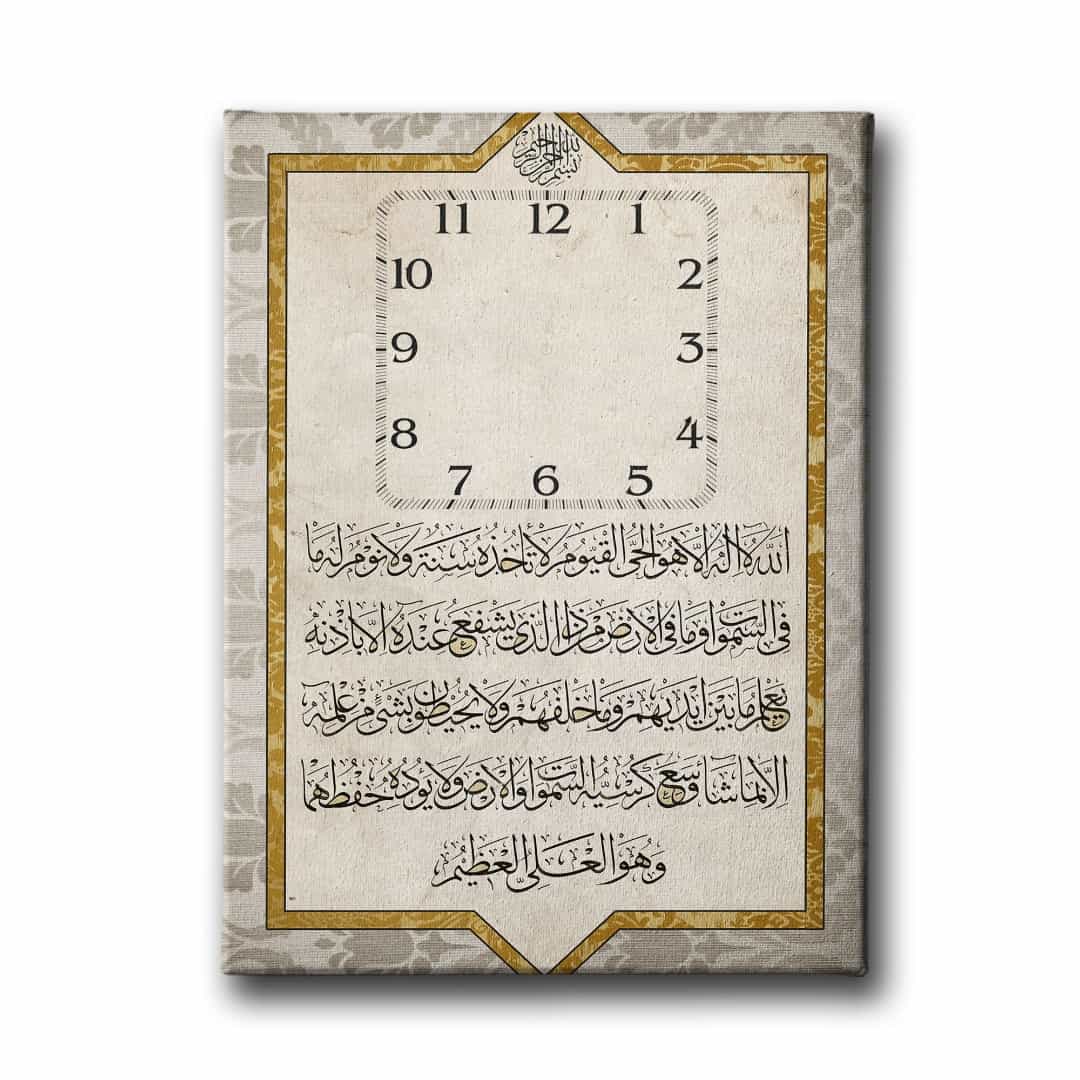 بسم الله الرحمن الرحيم
11 12 1
10 2
9 3
8 4
7 6 5
الله لا اله الا هو الحي القيوم لا تأخذه سنة ولا نوم له ما
في السموات وما في الارض من ذا الذي يشفع عنده الا باذنه
يعلم ما بين ايديهم وما خلفهم ولا يحيطون بشئ من علمه
الا بما شاء وسع كرسيه السموات والارض ولا يؤده حفظهما
وهو العلي العظيم